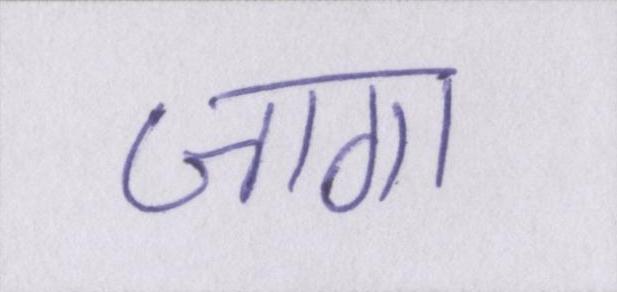 जागा